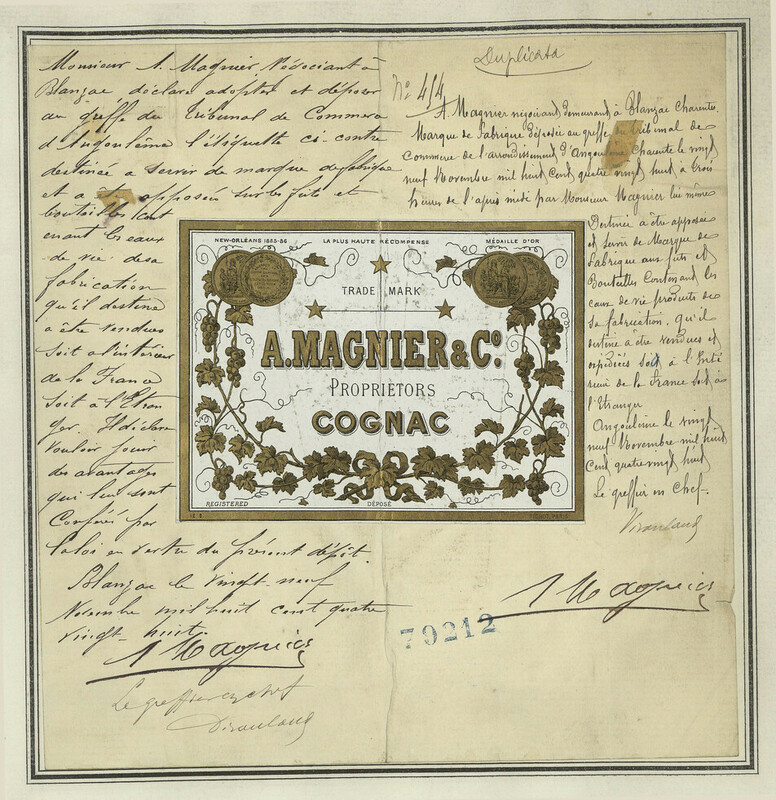 Monsieur A. Magnier Négociant à
Blanzac déclare adopter et déposer
au greffe du Tribunal de Commerce
d'Angoulême l'étiquette ci-contre
destinée a servir de marque de fabrique
et a être apposée sur les futs et
bouteilles cont
enant les eaux
de vie desa
fabrication
qu'il destine
a être vendues
soit a l'intérieur
de la France
soit à l'Etran
ger. Il déclare
vouloir jouir
des avantages
qui lui sont
Conférés par
la loi en vertu du présent dépôt.
Blanzac le vingt-neuf
Novembre mil huit cent quatre
vingt-huit.
A Magnier
Le greffier en chef
Duplicata
No 414
A Magnier négociant demeurant à Blanzac Charente.
Marque de Fabrique déposée au greffe du Tribunal de
Commerce de l'arrondissement d'Angoulême Charente le vingt
neuf Novembre mil huit cent quatre vingt huit à trois
heures de l'après midi par Monsieur Magnier lui même
Destinée à être apposée
et servir de Marque de
Fabrique aux futs et
Bouteilles Contenant les
eaux de vie produits de
sa fabrication, qu'il
destine à être vendues et
expédiées soit à l'Inté
rieur de la France soit à
l'Etranger
Angoulême le vingt
neuf Novembre mil huit
cent quatre vingt huit
Le greffier en chef
A Magnier
79212
NEW-ORLÉANS 1885-86 LA PLUS HAUTE RÉCOMPENSE MÉDAILLE D'OR
TRADE MARK
A. MAGNIER & Co.
PROPRIETORS
COGNAC
REGISTERED DÉPOSÉ